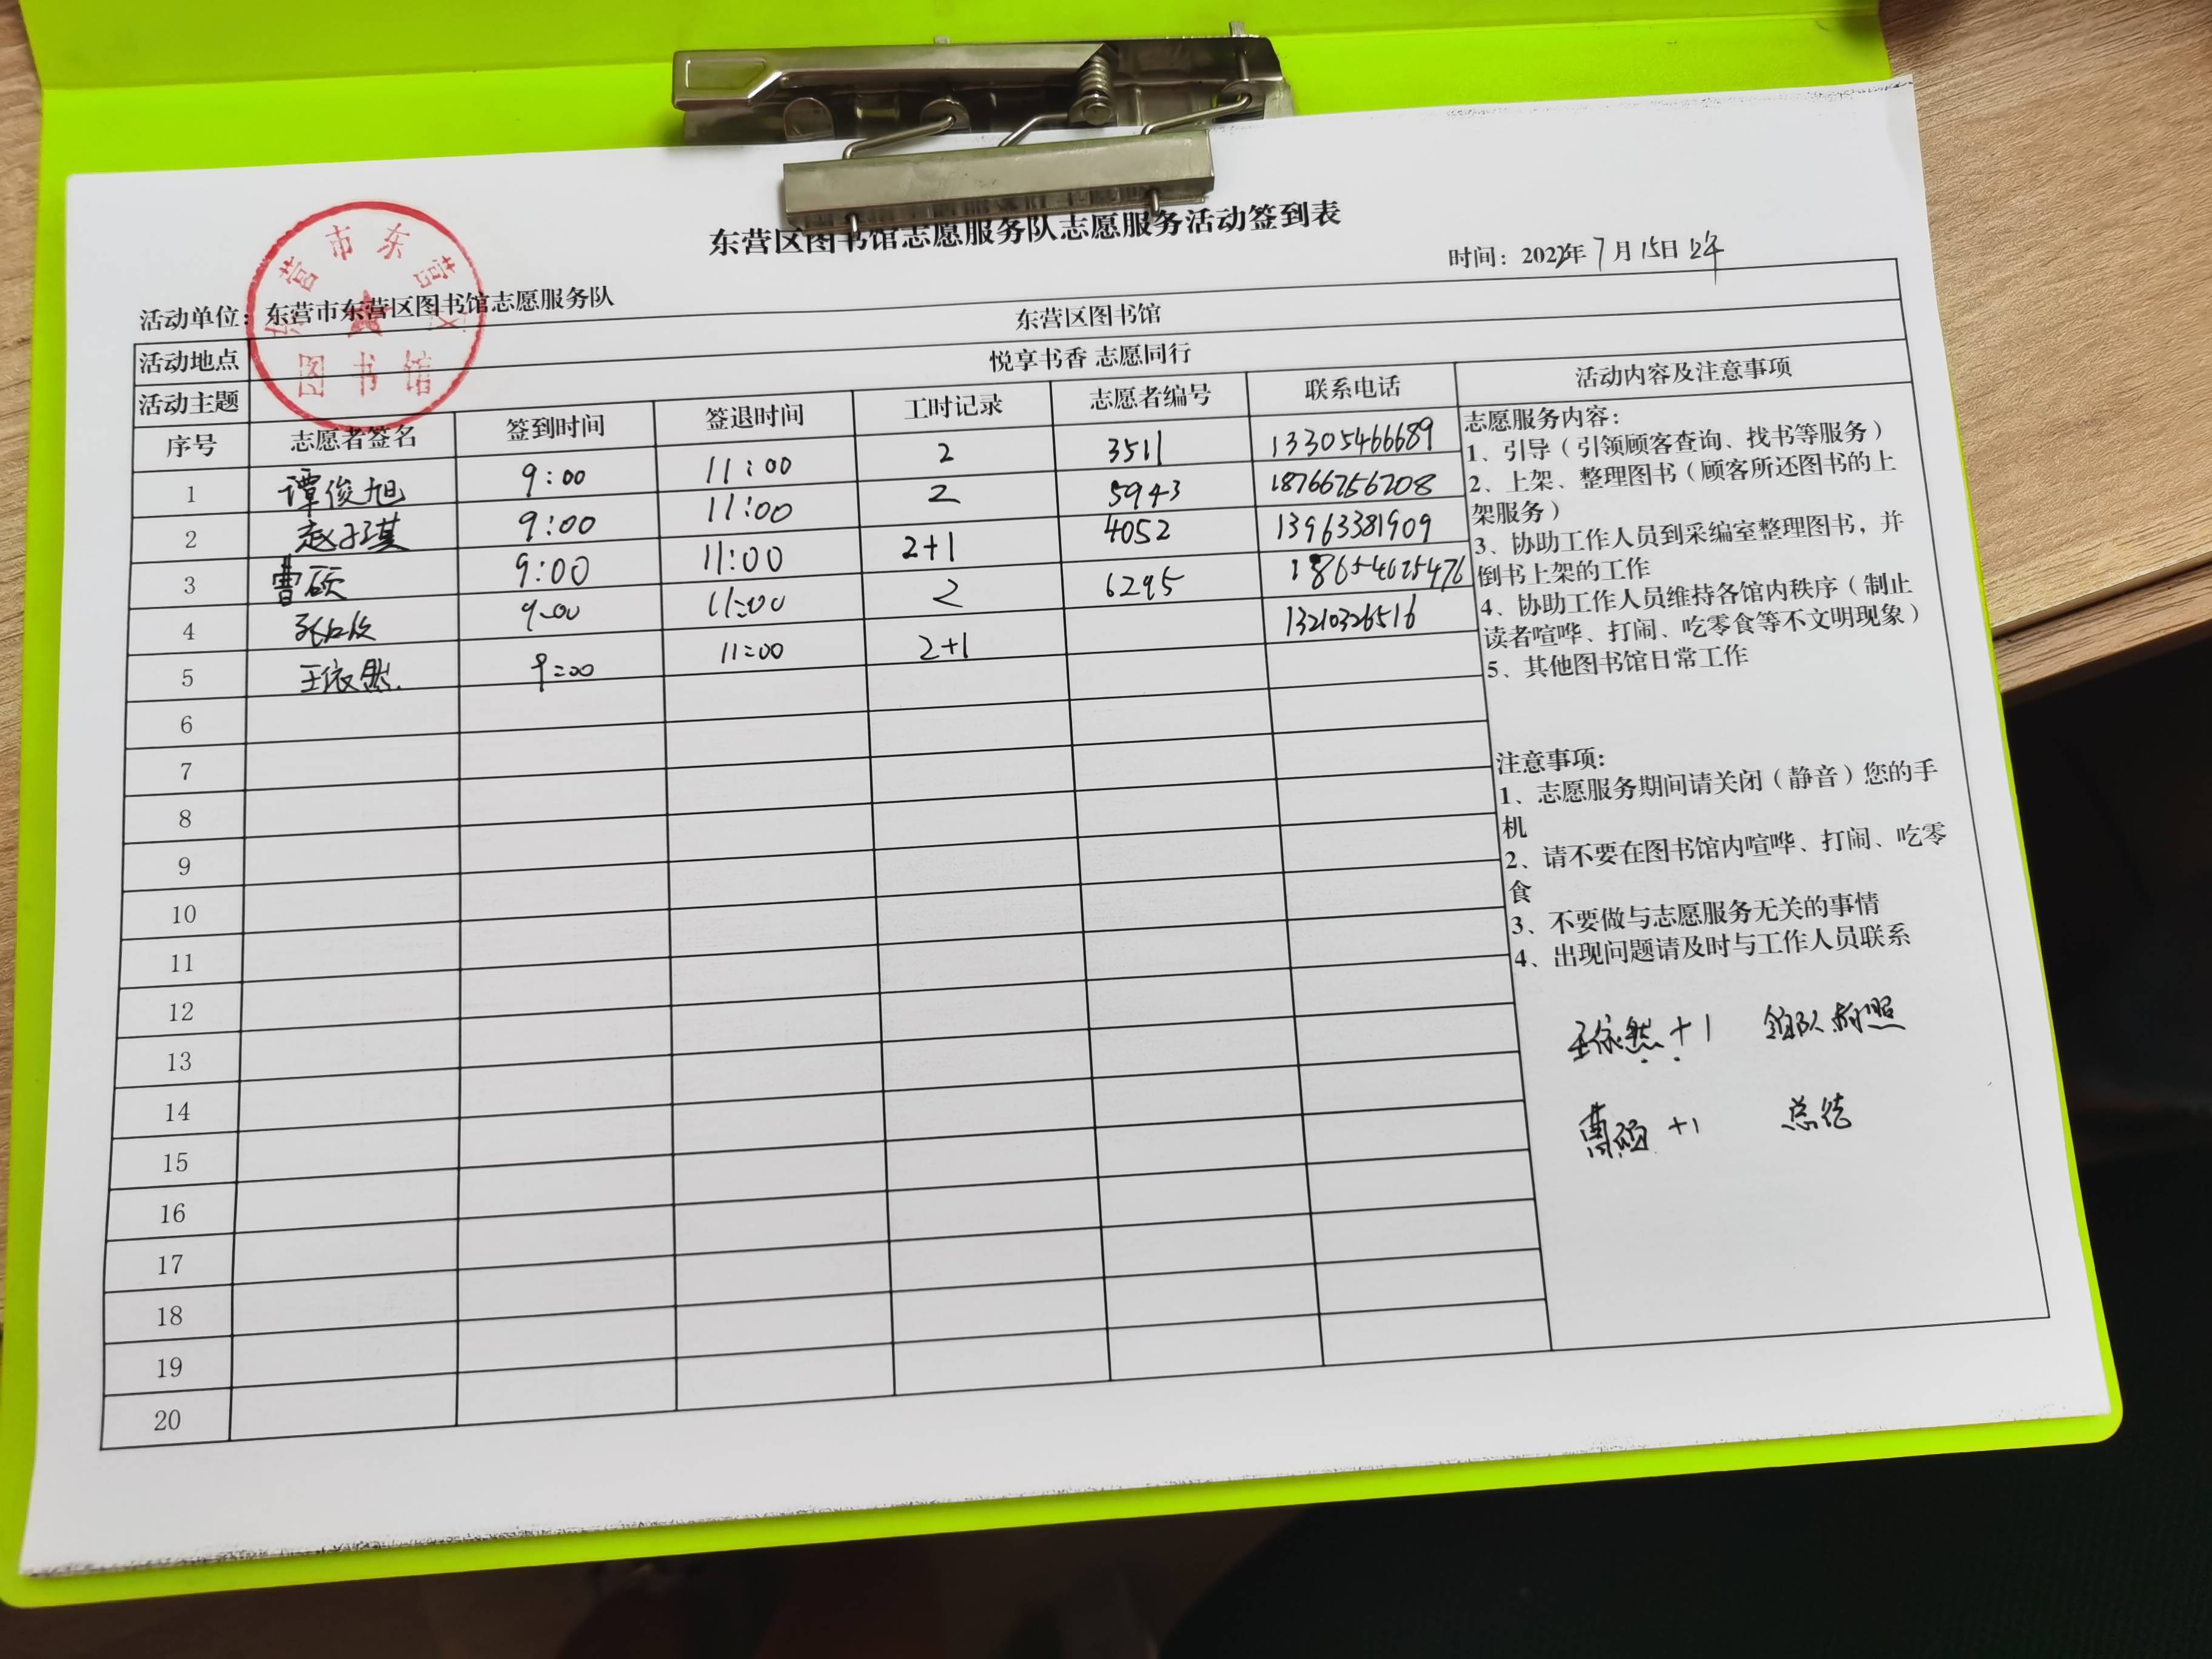 东营区图书馆志愿服务队志愿服务活动签到表
时间：2022年7月15日
活动单位：东营市东营区图书馆志愿服务队
东营市东营区
图书馆
活动地点 东营区图书馆
活动主题 悦享书香 志愿同行
序号 志愿者签名 签到时间 签退时间 工时记录 志愿者编号 联系电话 活动内容及注意事项
1 谭俊旭 9:00 11:00 2 3511 13305466689
2 赵子琪 9:00 11:00 2 5943 18766756708
3 曹硕 9:00 11:00 2+1 4052 13963381909
4 9:00 11:00 2 6295 18654625476
5 王依然 9:00 11:00 2+1 13210326516
6
7
8
9
10
11
12
13
14
15
16
17
18
19
20
志愿服务内容：
1、引导（引领顾客查询、找书等服务）
2、上架、整理图书（顾客所还图书的上
架服务）
3、协助工作人员到采编室整理图书，并
倒书上架的工作
4、协助工作人员维持各馆内秩序（制止
读者喧哗、打闹、吃零食等不文明现象）
5、其他图书馆日常工作
注意事项：
1、志愿服务期间请关闭（静音）您的手
机
2、请不要在图书馆内喧哗、打闹、吃零
食
3、不要做与志愿服务无关的事情
4、出现问题请及时与工作人员联系
王依然+1 领队拍照
曹硕 +1 总结